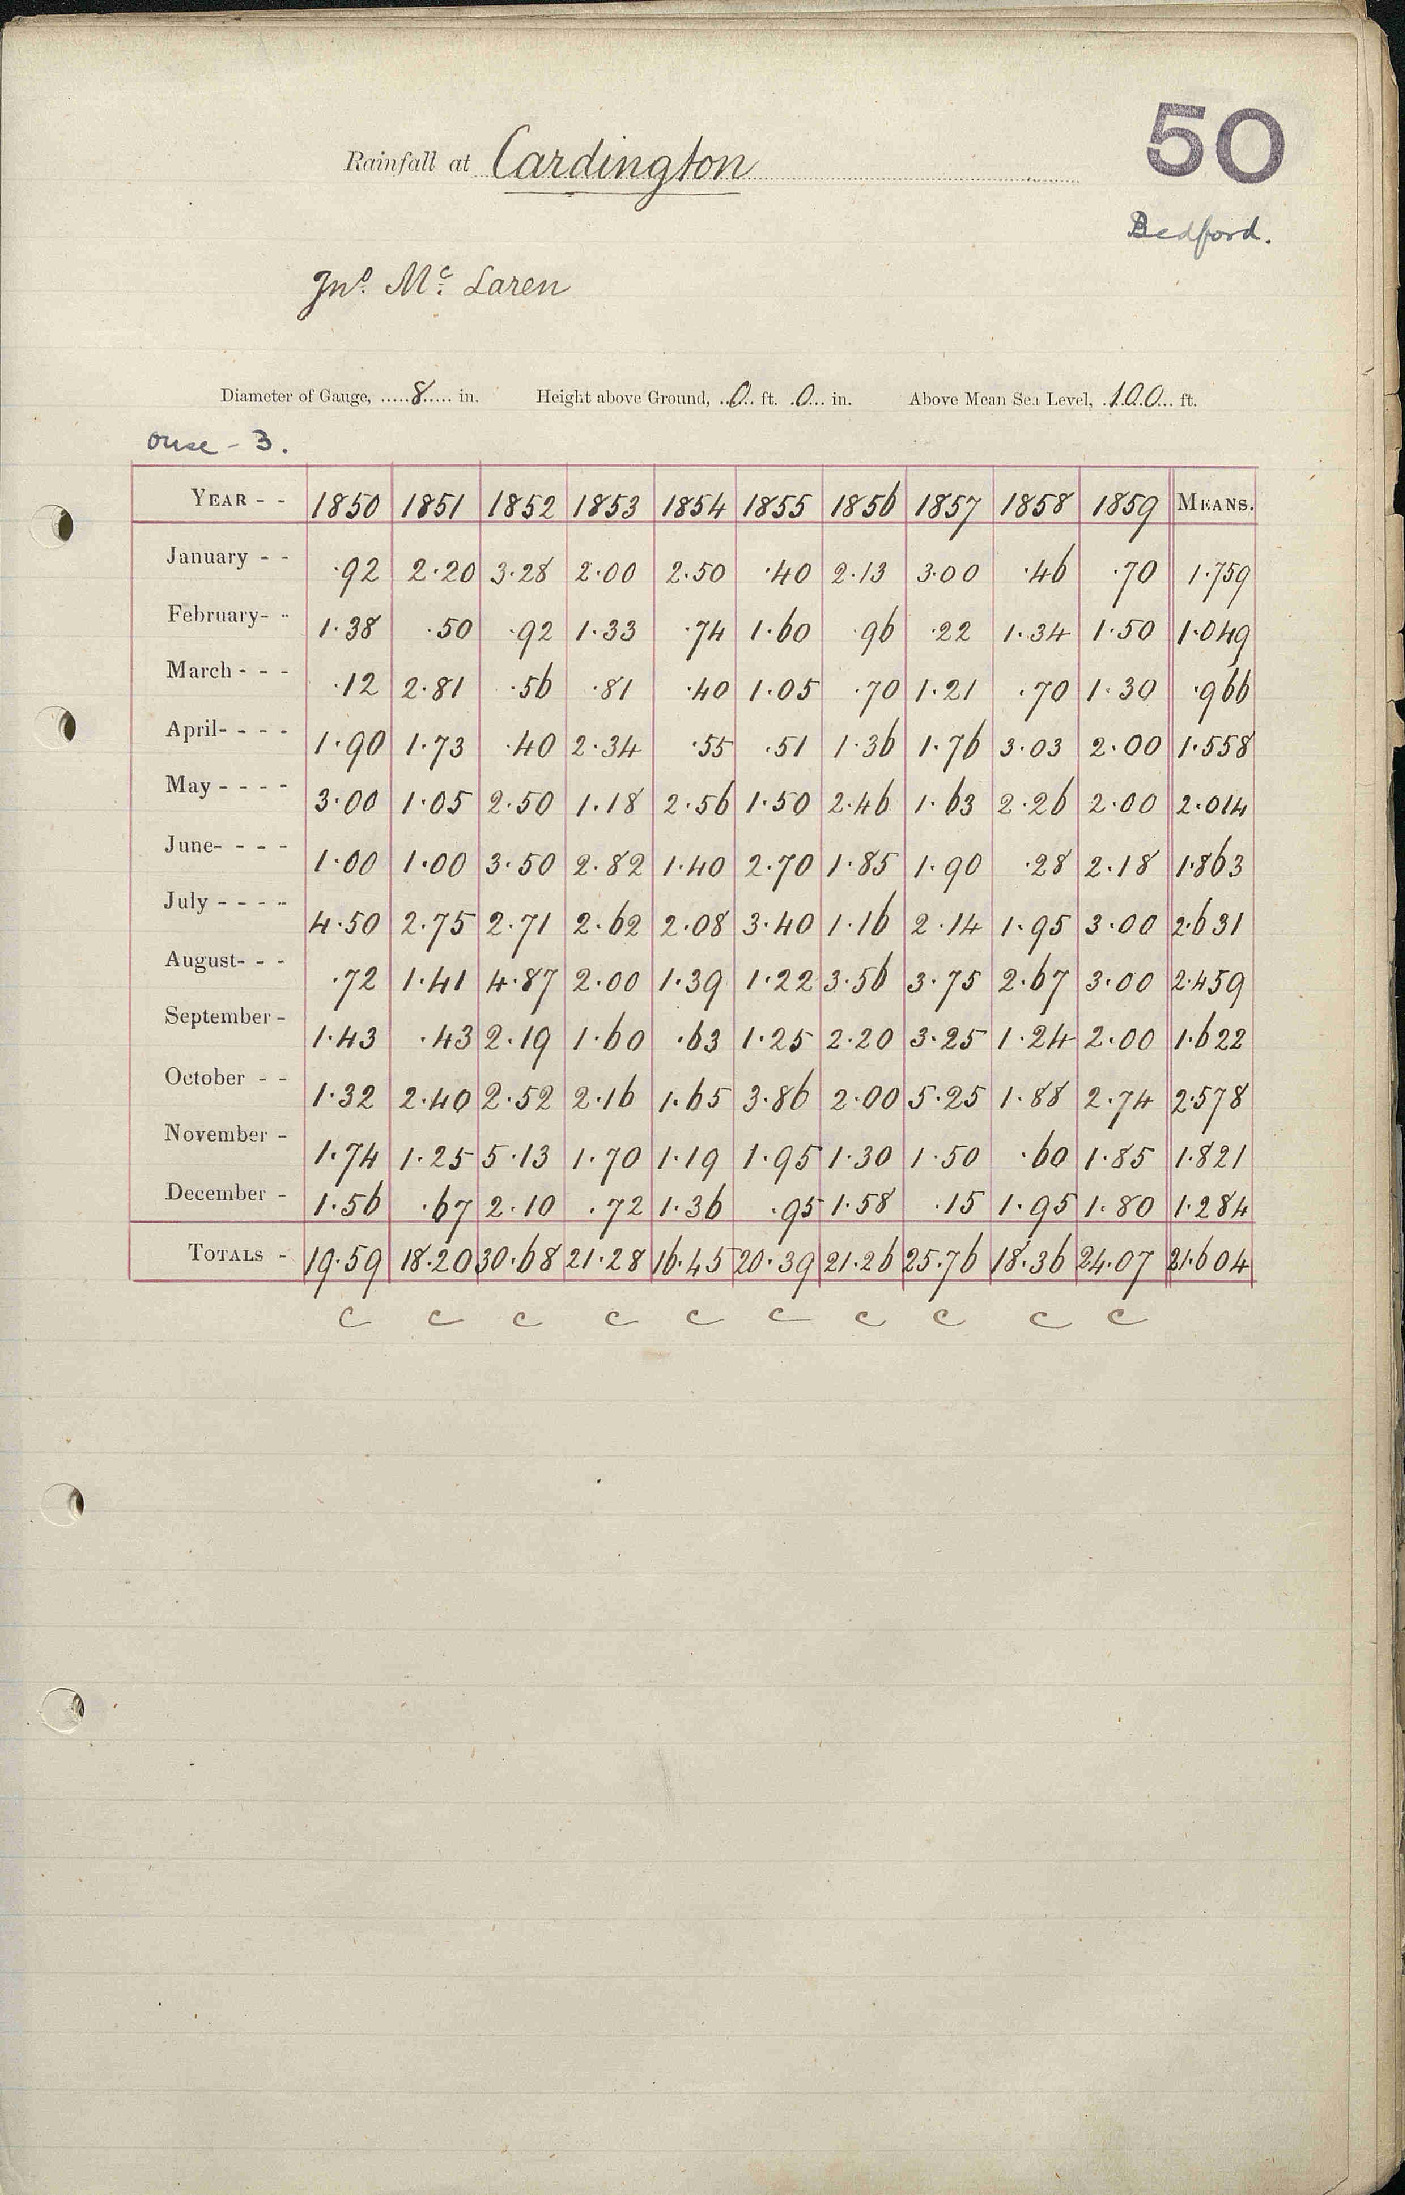 50
Rainfall at Cardington
Bedford.
Jno. Mc. Laren
Diameter of Gauge, 8 in. Height above Ground, 0 ft. 0 in. Above Mean Sea Level, 100 ft.
Ouse - 3.
YEAR - - 1850 1851 1852 1853 1854 1855 1856 1857 1858 1859 MEANS.
January - - .92 2.20 3.28 2.00 2.50 .40 2.13 3.00 .46 .70 1.759
February - - 1.38 .50 .92 1.33 .74 1.60 .96 .22 1.34 1.50 1.049
March - - - .12 2.81 .56 .81 .40 1.05 .70 1.21 .70 1.30 .966
April - - - - 1.90 1.73 .40 2.34 .55 .51 1.36 1.76 3.03 2.00 1.558
May - - - - 3.00 1.05 2.50 1.18 2.56 1.50 2.46 1.63 2.26 2.00 2.014
June - - - - 1.00 1.00 3.50 2.82 1.40 2.70 1.85 1.90 .28 2.18 1.863
July - - - - 4.50 2.75 2.71 2.62 2.08 3.40 1.16 2.14 1.95 3.00 2.631
August - - - .72 1.41 4.87 2.00 1.39 1.22 3.56 3.75 2.67 3.00 2.459
September - 1.43 .43 2.19 1.60 .63 1.25 2.20 3.25 1.24 2.00 1.622
October - - 1.32 2.40 2.52 2.16 1.65 3.86 2.00 5.25 1.88 2.74 2.578
November - 1.74 1.25 5.13 1.70 1.19 1.95 1.30 1.50 .60 1.85 1.821
December - 1.56 .67 2.10 .72 1.36 .95 1.58 .15 1.95 1.80 1.284
TOTALS - 19.59 18.20 30.68 21.28 16.45 20.39 21.26 25.76 18.36 24.07 21.604
c c c c c c c c c c